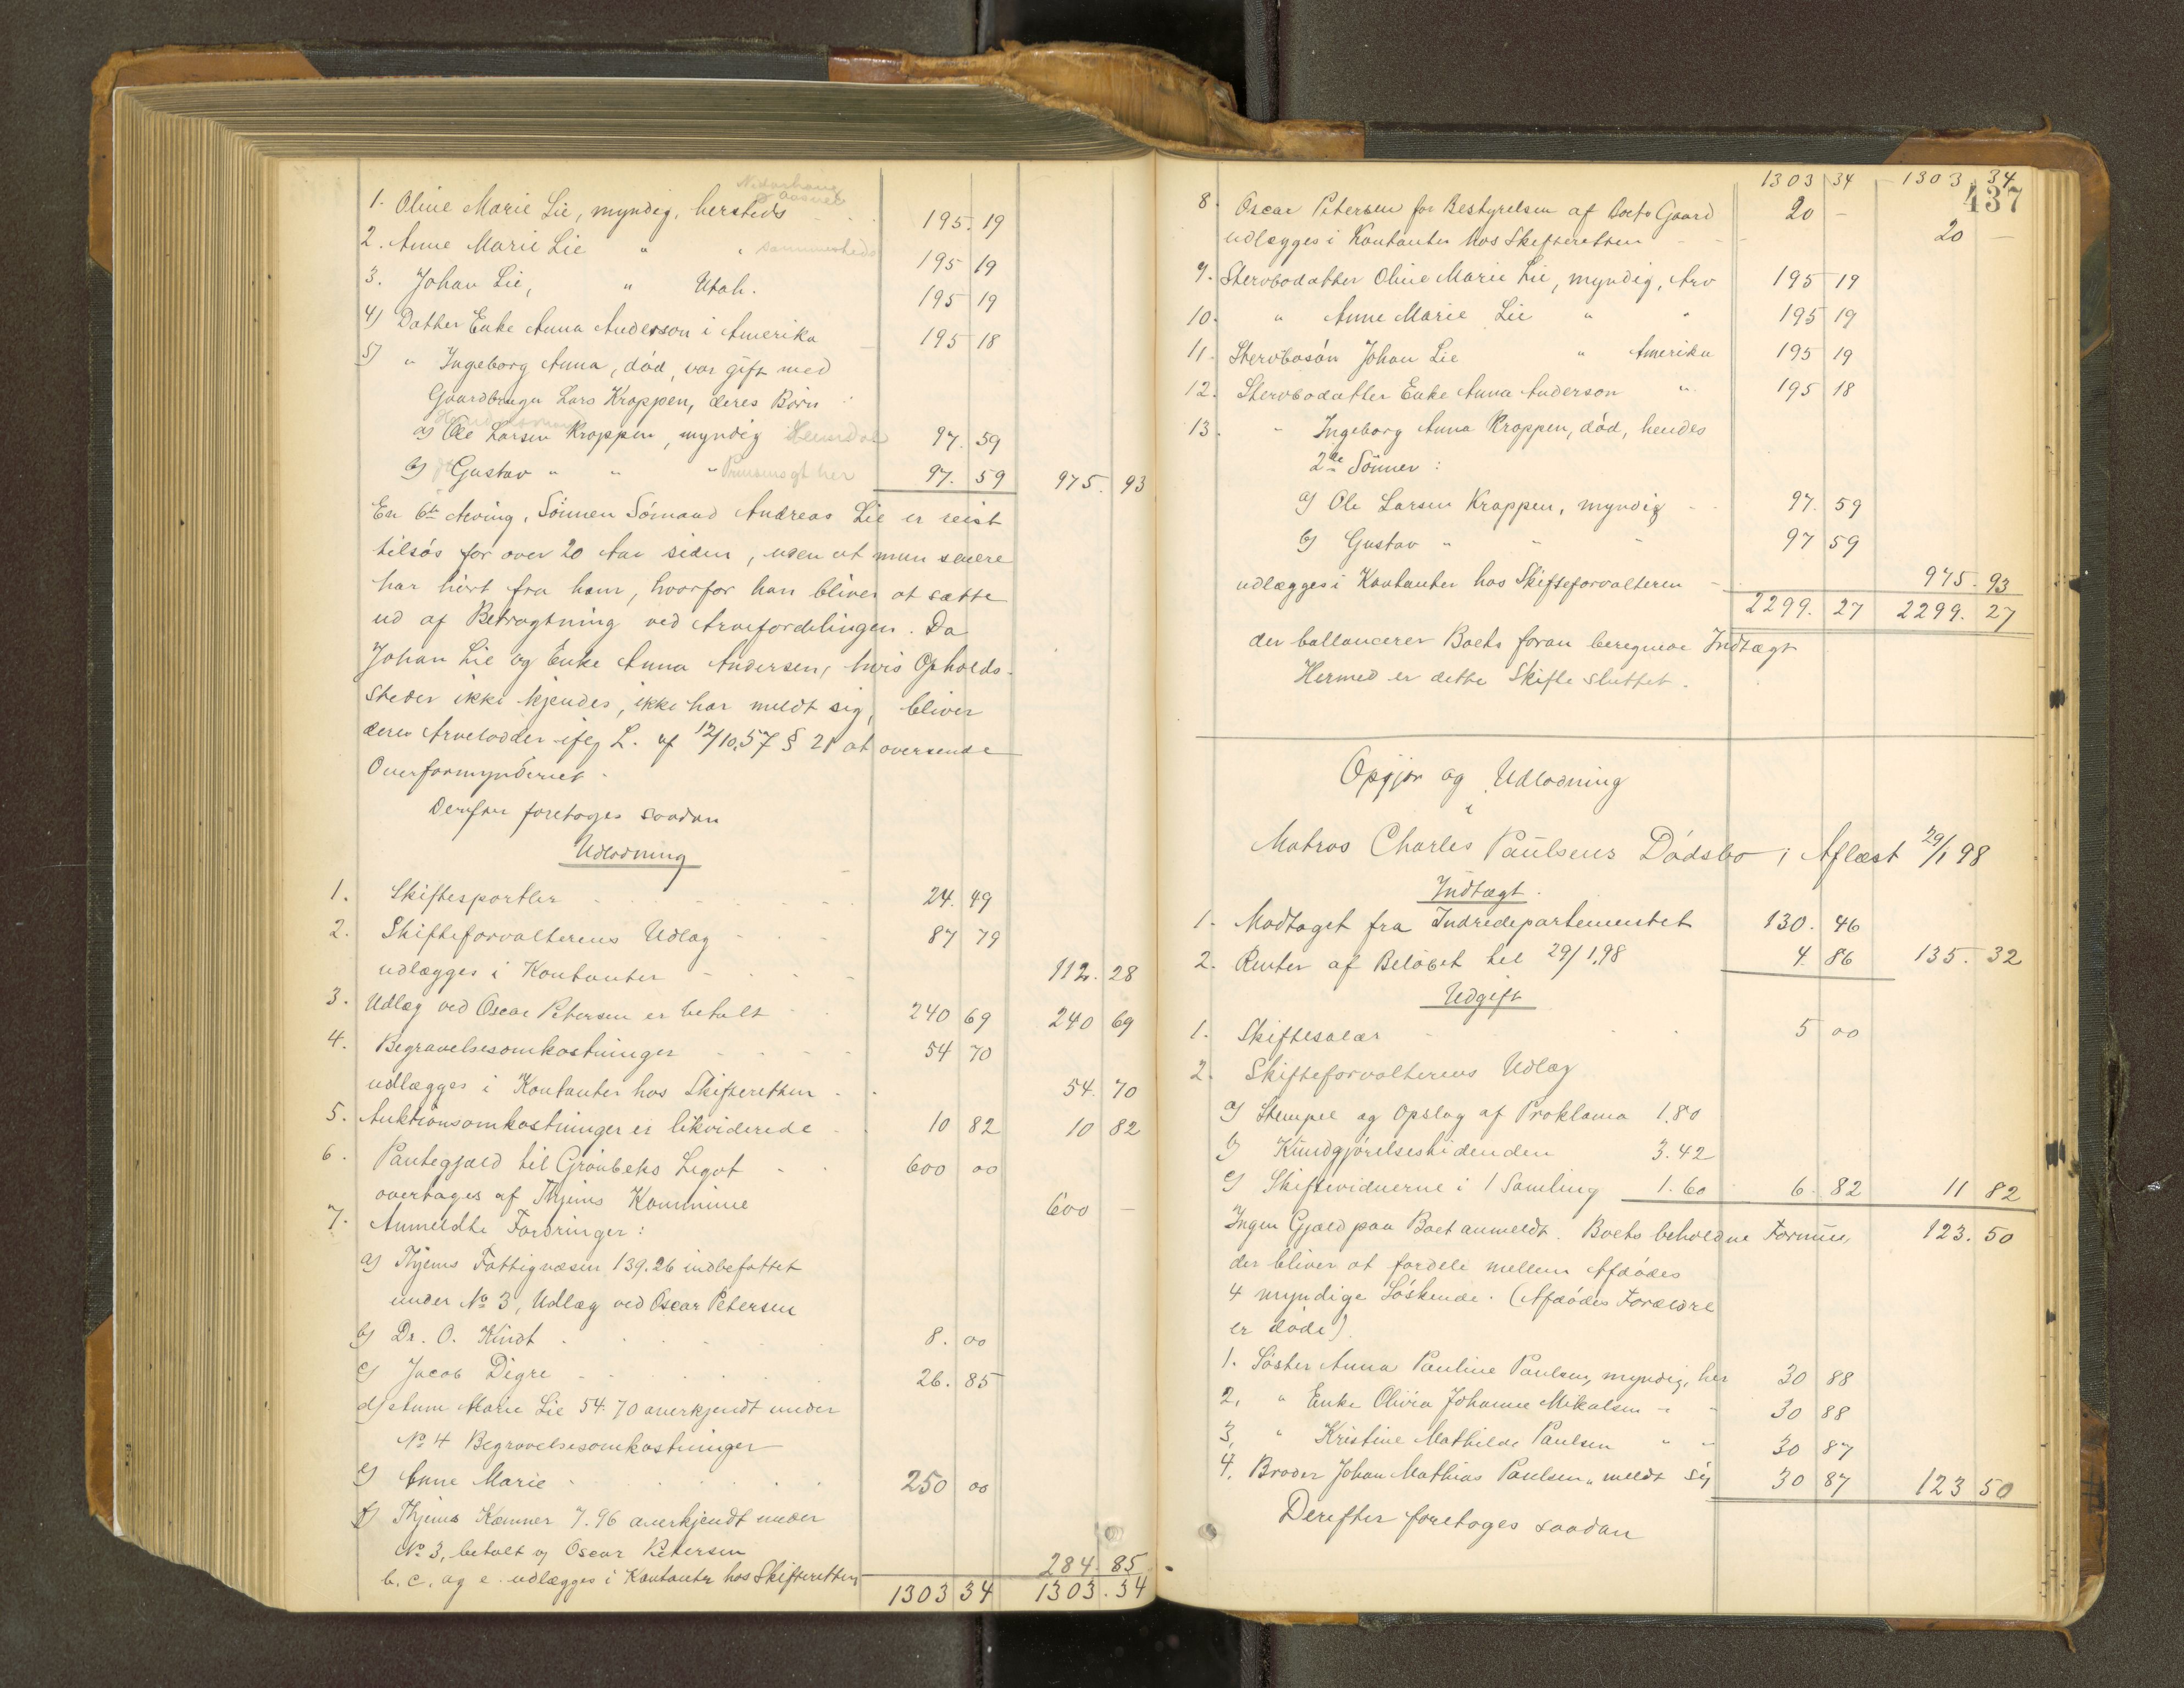 1. Oline Marie Lie, myndig, hersteds 195.19
2. Anne Marie Lie " " sammesteds 195 19
3. Johan Lie, " Utah. 195 19
4) Datter Enke Anna Anderson i Amerika 195 18
5) " Ingeborg Anna, död, var gift med
Gaardbruger Lars Kroppen, deres Börn :
a) Ole Larsen Kroppen, myndig 97. 59
b) Gustav " " " 97. 59 975. 93
En 6te Arving, Sönnen Sömand Andreas Lie er reist
tilsös for over 20 Aar siden, uden at man senere
har hört fra ham, hvorfor han bliver at sætte
ud af Betragtning ved Arvefordelingen. Da
Johan Lie og Enke Anna Andersen, hvis Opholds-
steder ikke kjendes, ikke har meldt sig, bliver
deres Arvelodder ifлg L. af 12/10.57 § 21 at oversende
Overformynderiet.
Derefter foretages saadan
Udlodning
1. Skiftesportler 24. 49
2. Skifteforvalterens Udlæg 87 79
udlægges i Kontanter 112. 28
3. Udlæg ved Oscar Petersen er betalt 240 69 240 69
4. Begravelsesomkostninger 54 70
udlægges i Kontanter hos Skifteretten 54. 70
5. Auktionsomkostninger er likviderede 10 82 10 82
6. Pantegjæld til Grönbeks Legat 600 00
overtages af Thjems Kommune 600 —
7. Anmeldte Fordringer:
a) Thjems Fattigvæsen 139.26 indbefattet
under No 3, Udlæg ved Oscar Petersen
b) Dr. O. Kindt 8. 00
c) Jacob Digre 26. 85
d) Anne Marie Lie 54.70 anerkjendt under
No 4 Begravelsesomkostninger
e) Anne Marie 250 00
f) Thjems Kæmner 7.96 anerkjendt under
No 3, betalt af Oscar Petersen
b. c. og e. udlægges i Kontanter hos Skifteretten 284. 85
1303 34 1303. 34
437
1303 34 1303 34
8. Oscar Petersen for Bestyrelsen af Boets Gaard 20 —
udlægges i Kontanter hos Skifteretten 20 —
9. Stervbodatter Oline Marie Lie, myndig, Arv 195 19
10. " Anne Marie Lie " " 195 19
11. Stervbosön Johan Lie " Amerika 195 19
12. Stervbodatter Enke Anna Anderson " 195 18
13. " Ingeborg Anna Kroppen, död, hendes
2de Sönner :
a) Ole Larsen Kroppen, myndig 97. 59
b) Gustav " " " 97 59
udlægges i Kontanter hos Skifteforvalteren 975. 93
2299. 27 2299. 27
der ballancerer Boets foran beregnede Indtægt
Hermed er dette Skifte sluttet.
Opgjør og Udlodning
i
Matros Charles Paulsens Dödsbo ; Aflæst 29/1 98
Indtægt.
1. Modtaget fra Indredepartementet 130. 46
2. Renter af Belöbet til 29/1.98 4. 86 135. 32
Udgift
1. Skiftesalær 5 00
2. Skifteforvalterens Udlæg
a) Stempel og Opslag af Proklama 1.80
b) Kundgjörelsestidenden 3.42
c) Skiftevidnerne i 1 Samling 1.60 6. 82 11 82
Ingen Gjæld paa Boet anmeldt. Boets beholdne Formue, 123. 50
der bliver at fordele mellem Afdödes
4 myndige Söskende. (Afdödes Forældre
er döde).
1. Söster Anna Pauline Paulsen, myndig, her 30 88
2. " Enke Olivia Johanne Mikalsen " " 30 88
3. " Kristine Mathilde Paulsen " " 30 87
4. Broder Johan Mathias Paulsen " meldt sig 30 87 123 50
Derefter foretages saadan